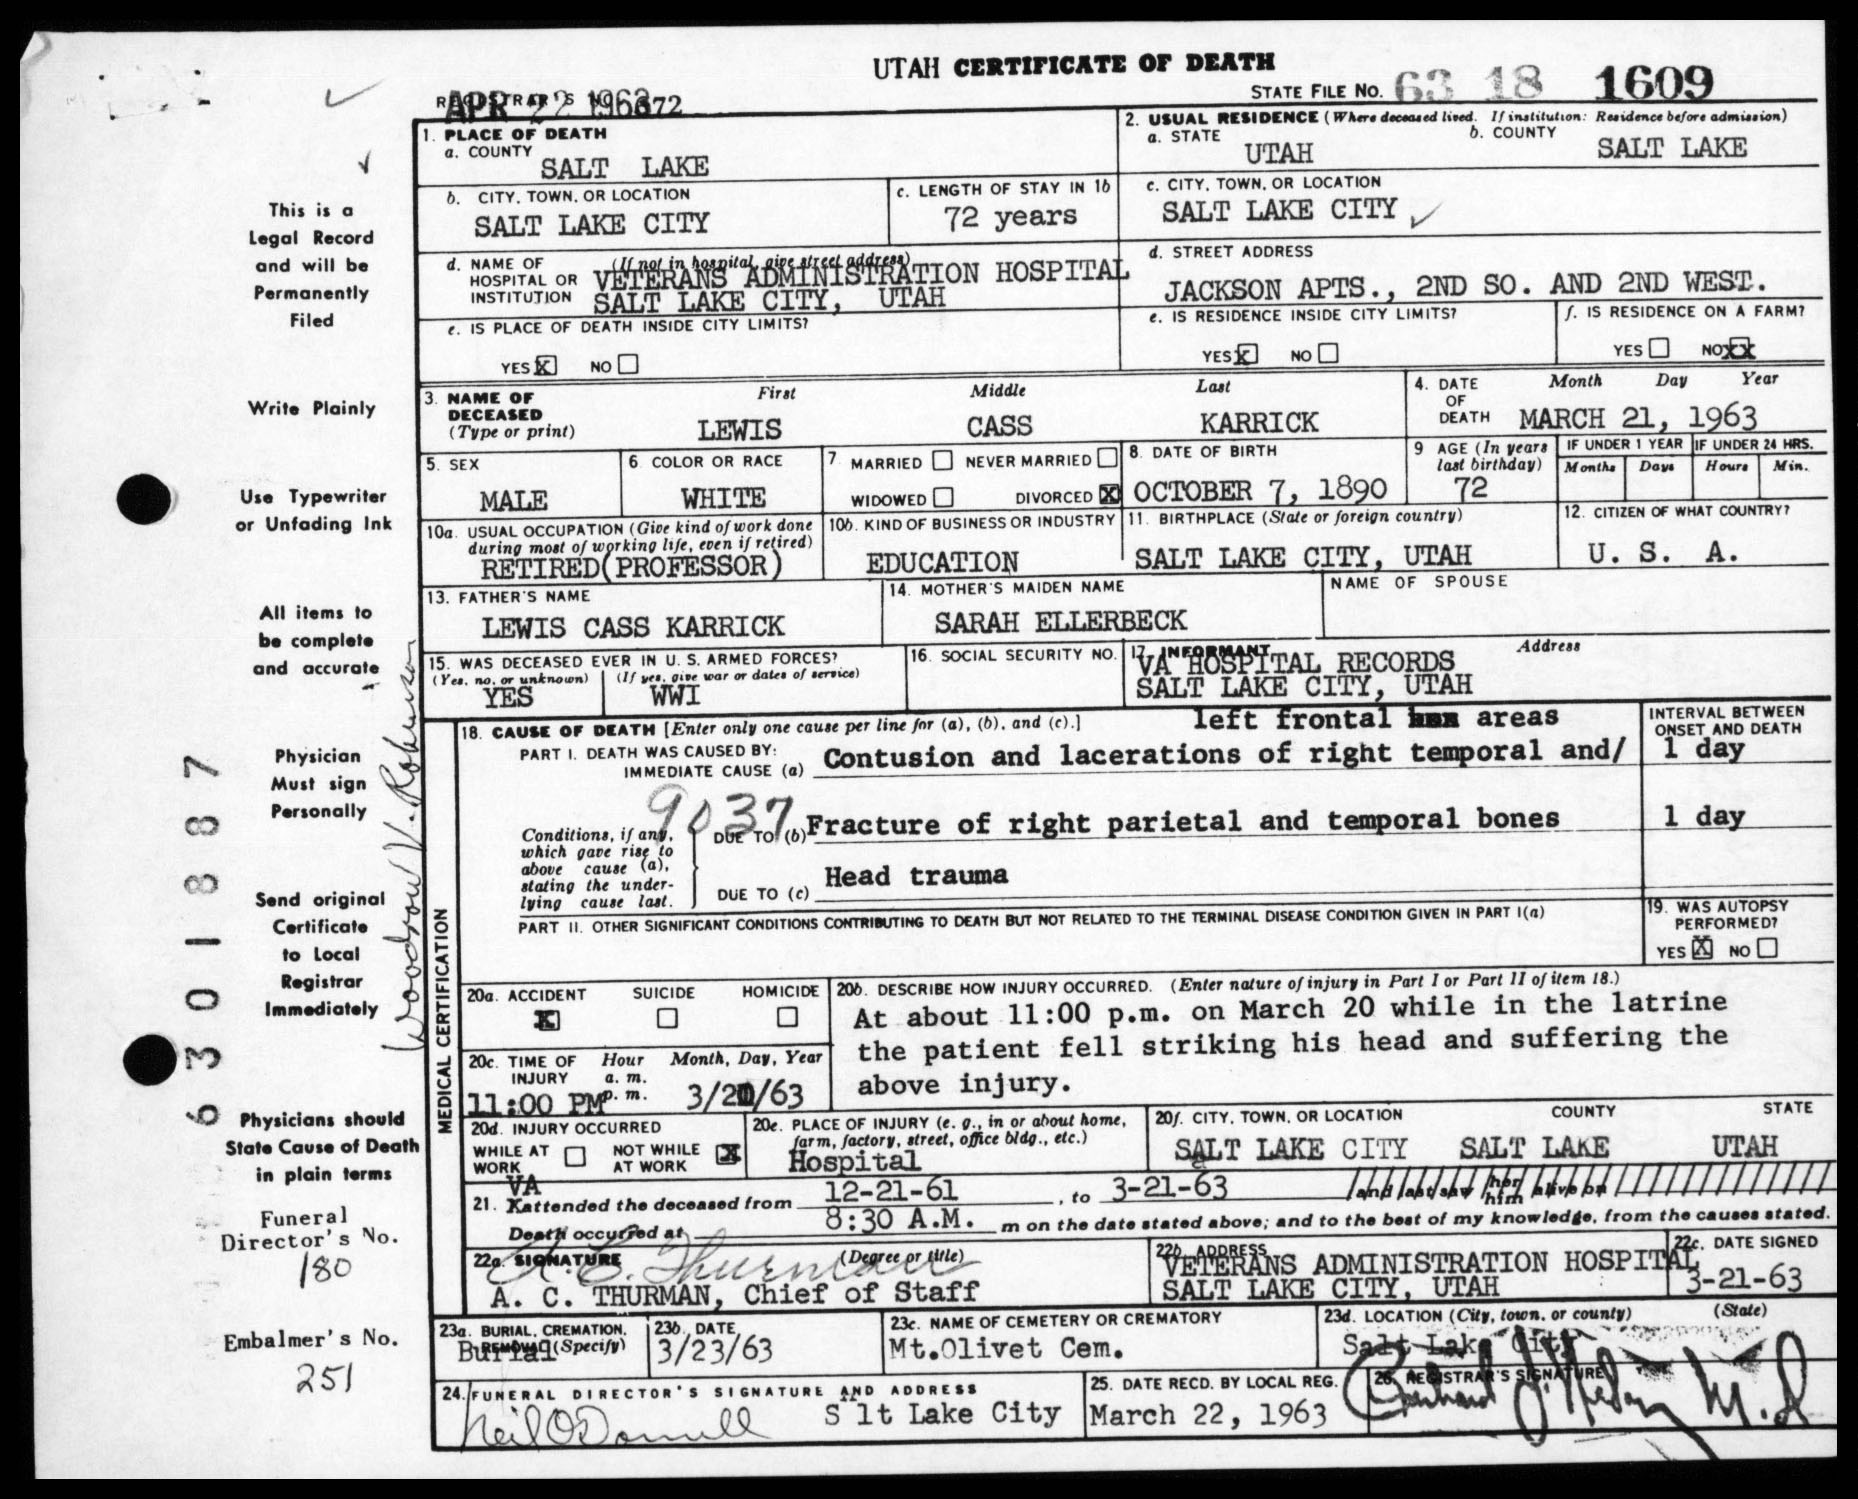 UTAH CERTIFICATE OF DEATH
STATE FILE NO. 63 18 1609
REGISTRAR'S NO. 672
APR 22 1963
1. PLACE OF DEATH
a. COUNTY
SALT LAKE
2. USUAL RESIDENCE (Where deceased lived. If institution: Residence before admission)
a. STATE
UTAH
b. COUNTY
SALT LAKE
b. CITY, TOWN, OR LOCATION
SALT LAKE CITY
c. LENGTH OF STAY IN 1b
72 years
c. CITY, TOWN, OR LOCATION
SALT LAKE CITY
d. NAME OF HOSPITAL OR INSTITUTION
(If not in hospital, give street address)
VETERANS ADMINISTRATION HOSPITAL
SALT LAKE CITY, UTAH
d. STREET ADDRESS
JACKSON APTS., 2ND SO. AND 2ND WEST.
e. IS PLACE OF DEATH INSIDE CITY LIMITS?
YES X NO
e. IS RESIDENCE INSIDE CITY LIMITS?
YES X NO
f. IS RESIDENCE ON A FARM?
YES NO XX
3. NAME OF DECEASED
(Type or print)
First Middle Last
LEWIS CASS KARRICK
4. DATE OF DEATH
Month Day Year
MARCH 21, 1963
5. SEX
MALE
6. COLOR OR RACE
WHITE
7. MARRIED NEVER MARRIED
WIDOWED DIVORCED X
8. DATE OF BIRTH
OCTOBER 7, 1890
9 AGE (In years last birthday)
72
IF UNDER 1 YEAR
Months Days
IF UNDER 24 HRS.
Hours Min.
10a. USUAL OCCUPATION (Give kind of work done
during most of working life, even if retired)
RETIRED(PROFESSOR)
10b. KIND OF BUSINESS OR INDUSTRY
EDUCATION
11. BIRTHPLACE (State or foreign country)
SALT LAKE CITY, UTAH
12. CITIZEN OF WHAT COUNTRY?
U. S. A.
13. FATHER'S NAME
LEWIS CASS KARRICK
14. MOTHER'S MAIDEN NAME
SARAH ELLERBECK
NAME OF SPOUSE
15. WAS DECEASED EVER IN U. S. ARMED FORCES?
(Yes, no, or unknown) (If yes, give war or dates of service)
YES WWI
16. SOCIAL SECURITY NO.
17. INFORMANT Address
VA HOSPITAL RECORDS
SALT LAKE CITY, UTAH
MEDICAL CERTIFICATION
18. CAUSE OF DEATH [Enter only one cause per line for (a), (b), and (c).]
left frontal areas
INTERVAL BETWEEN ONSET AND DEATH
PART I. DEATH WAS CAUSED BY:
IMMEDIATE CAUSE (a) Contusion and lacerations of right temporal and/ 1 day
9037
Conditions, if any, which gave rise to above cause (a), stating the underlying cause last.
DUE TO (b) Fracture of right parietal and temporal bones 1 day
DUE TO (c) Head trauma
PART II. OTHER SIGNIFICANT CONDITIONS CONTRIBUTING TO DEATH BUT NOT RELATED TO THE TERMINAL DISEASE CONDITION GIVEN IN PART I(a)
19. WAS AUTOPSY PERFORMED?
YES X NO
20a. ACCIDENT SUICIDE HOMICIDE
X
20b. DESCRIBE HOW INJURY OCCURRED. (Enter nature of injury in Part I or Part II of item 18.)
At about 11:00 p.m. on March 20 while in the latrine
the patient fell striking his head and suffering the
above injury.
20c. TIME OF INJURY
Hour a. m. p. m. Month, Day, Year
11:00 PM 3/20/63
20d. INJURY OCCURRED
WHILE AT WORK NOT WHILE AT WORK X
20e. PLACE OF INJURY (e. g., in or about home,
farm, factory, street, office bldg., etc.)
Hospital
20f. CITY, TOWN, OR LOCATION COUNTY STATE
SALT LAKE CITY SALT LAKE UTAH
VA
21. I attended the deceased from 12-21-61, to 3-21-63 and last saw her him alive on
Death occurred at 8:30 A.M. m on the date stated above; and to the best of my knowledge, from the causes stated.
22a. SIGNATURE (Degree or title)
A. C. Thurman
A. C. THURMAN, Chief of Staff
22b. ADDRESS
VETERANS ADMINISTRATION HOSPITAL
SALT LAKE CITY, UTAH
22c. DATE SIGNED
3-21-63
23a. BURIAL, CREMATION, REMOVAL (Specify)
Burial
23b. DATE
3/23/63
23c. NAME OF CEMETERY OR CREMATORY
Mt.Olivet Cem.
23d. LOCATION (City, town, or county) (State)
Salt Lake City
24. FUNERAL DIRECTOR'S SIGNATURE AND ADDRESS
Neil O'Donnell S lt Lake City
25. DATE RECD. BY LOCAL REG.
March 22, 1963
26. REGISTRAR'S SIGNATURE
M.D
This is a
Legal Record
and will be
Permanently
Filed
Write Plainly
Use Typewriter
or Unfading Ink
All items to
be complete
and accurate
Physician
Must sign
Personally
Send original
Certificate
to Local
Registrar
Immediately
Physicians should
State Cause of Death
in plain terms
Funeral
Director's No.
180
Embalmer's No.
251
6301887
Woodrow V. Roberson